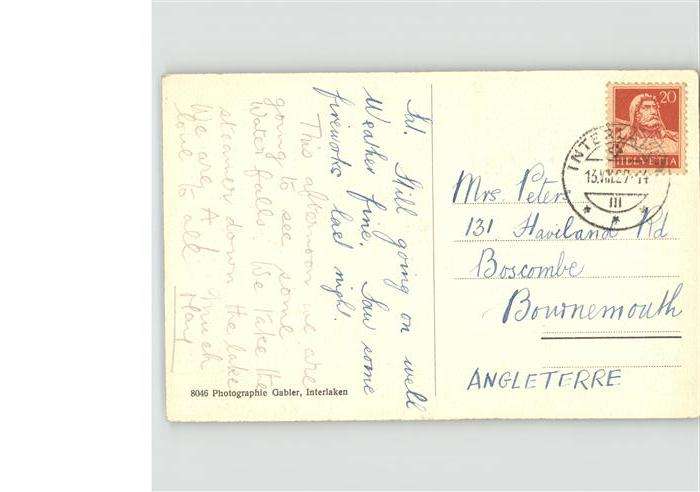 Sat. Still going on well
Weather fine. Saw some
fireworks last night.
This afternoon we are
going to see some
Water falls. We take the
steamer down the lake
We are A 1 Much
love to all May
8046 Photographie Gabler, Interlaken
20
HELVETIA
INTERLAKEN
13.VIII.27-14
III
Mrs. Peter
131 Haviland Rd
Boscombe
Bournemouth
ANGLETERRE